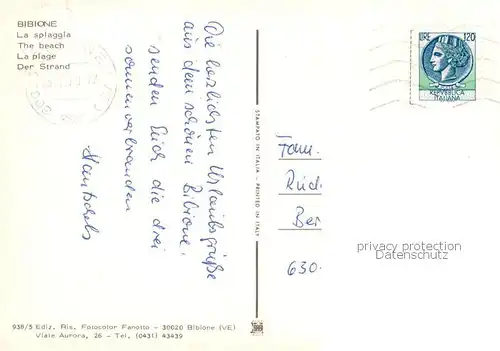 BIBIONE
La spiaggia
The beach
La plage
Der Strand
Die herzlichsten Urlaubsgrüße
aus dem schönen Bibione,
senden Euch die drei
sonnenverbrannten
STAMPATO IN ITALIA - PRINTED IN ITALY
LIRE 120
REPVBBLICA
ITALIANA
Fam.
Rüd
Bei
630
privacy protection
Datenschutz
938/5 Ediz. Ris. Fotocolor Fanotto - 30020 Bibione (VE)
Viale Aurora, 26 - Tel. (0431) 43439